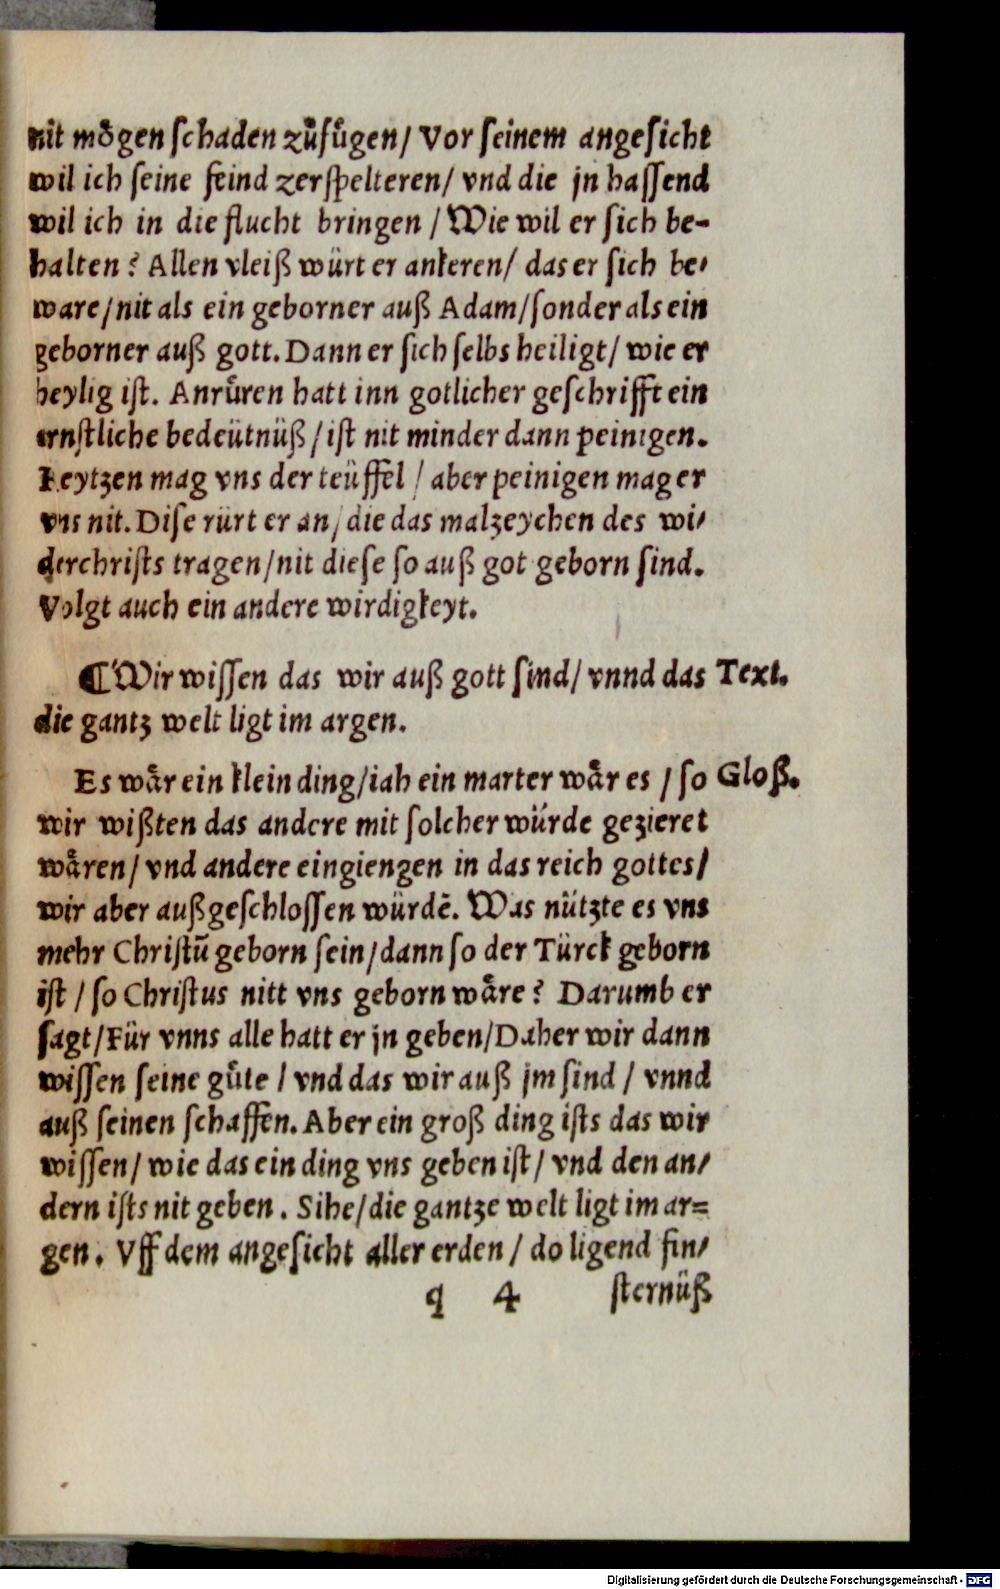 nit moͤgen ſchaden zuͦfuͤgen/ Vor ſeinem angeſicht
wil ich ſeine feind zerſpelteren/ vnd die jn haſſend
wil ich in die flucht bringen / Wie wil er ſich be-
halten? Allen vleiß würt er ankeren/ das er ſich be⸗
ware/nit als ein geborner auß Adam/ſonder als ein
geborner auß gott. Dann er ſich ſelbs heiligt/ wie er
heylig iſt. Anruͤren hatt inn gotlicher geſchrifft ein
ernſtliche bedeütnüß/ iſt nit minder dann peinigen.
Reytzen mag vns der teüffel / aber peinigen mag er
vns nit. Diſe rürt er an/ die das malzeychen des wi⸗
derchriſts tragen/nit dieſe ſo auß got geborn ſind.
Volgt auch ein andere wirdigkeyt.
¶ Wir wiſſen das wir auß gott ſind/ vnnd das Text.
die gantz welt ligt im argen.
Es waͤr ein klein ding/iah ein marter waͤr es / ſo Gloß.
wir wißten das andere mit ſolcher würde gezieret
waͤren/ vnd andere eingiengen in das reich gottes/
wir aber außgeſchloſſen würdē. Was nützte es vns
mehr Chriſtū geborn ſein/dann ſo der Türck geborn
iſt / ſo Chriſtus nitt vns geborn waͤre? Darumb er
ſagt/Für vnns alle hatt er jn geben/Daher wir dann
wiſſen ſeine guͤte / vnd das wir auß jm ſind / vnnd
auß ſeinen ſchaffen. Aber ein groß ding iſts das wir
wiſſen/ wie das ein ding vns geben iſt/ vnd den an⸗
dern iſts nit geben. Sihe/die gantze welt ligt im ar⸗
gen. Vff dem angeſicht aller erden / do ligend fin⸗
q 4 ſternüß
Digitalisierung gefördert durch die Deutsche Forschungsgemeinschaft - DFG